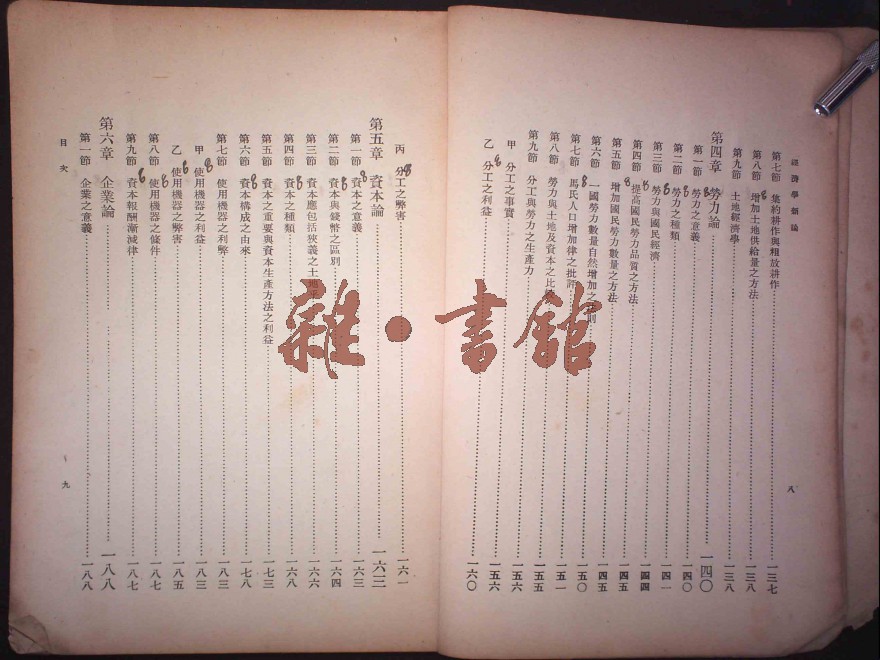 經濟學新論
第七節 集約耕作與粗放耕作 一三七
第八節 增加土地供給量之方法 一三八
第九節 土地經濟學 一三八
第四章 勞力論 一四〇
第一節 勞力之意義 一四〇
第二節 勞力之種類 一四〇
第三節 勞力與國民經濟 一四一
第四節 提高國民勞力品質之方法 一四四
第五節 增加國民勞力數量之方法 一四五
第六節 一國勞力數量自然增加之 則 一四五
第七節 馬氏人口增加律之批評 一五〇
第八節 勞力與土地及資本之比 一五一
第九節 分工與勞力之生產力 一五五
甲 分工之事實 一五六
乙 分工之利益 一五六
一六〇
八
丙 分工之弊害 一六一
第五章 資本論 一六三
第一節 資本之意義 一六三
第二節 資本與錢幣之區別 一六四
第三節 資本應包括狹義之土地 一六六
第四節 資本之種類 一六八
第五節 資本之重要與資本生產方法之利益 一七三
第六節 資本構成之由來 一七八
第七節 使用機器之利弊 一八三
甲 使用機器之利益 一八三
乙 使用機器之弊害 一八五
第八節 使用機器之條件 一八七
第九節 資本報酬漸減律 一八七
第六章 企業論 一八八
第一節 企業之意義 一八八
目次
九
雜·書館